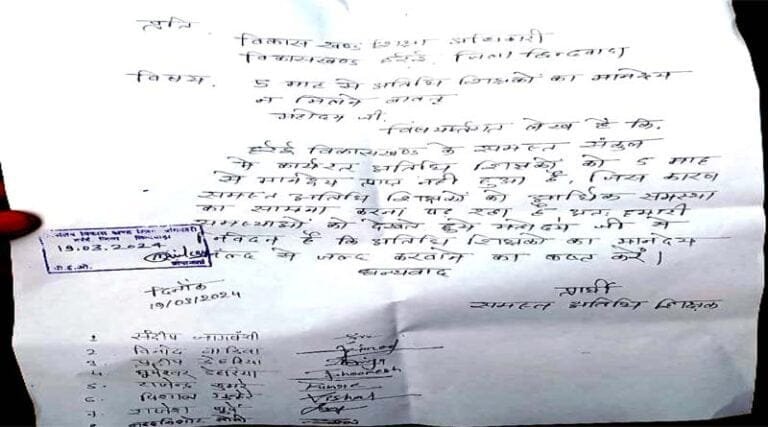 प्रति,
विकास खण्ड शिक्षा अधिकारी
विकासखण्ड हर्रई, जिला छिन्दवाड़ा
विषय. 5 माह से अतिथि शिक्षकों का मानदेय
न मिलने बावत्
महोदय जी,
विषयार्न्तगत लेख है कि,
हर्रई विकासखण्ड के समस्त संकुल
में कार्यरत अतिथि शिक्षकों को 5 माह
से मानदेय प्राप्त नही हुआ है, जिस कारण
समस्त अतिथि शिक्षकों को आर्थिक समस्या
का सामना करना पड़ रहा है अतः हमारी
समस्याओं को देखते हुये महोदय जी से
निवेदन है कि अतिथि शिक्षकों का मानदेय
जल्द से जल्द करवाने का कष्ट करें।
धन्यवाद
विकास खण्ड शिक्षा अधिकारी
19.03.2024
दिनाँक
19/03/2024
प्रार्थी
समस्त अतिथि शिक्षक
1 संदीप नागवंशी
2 विनोद
3 डेहरिया
4 भूपेश्वर डेहरिया Bhooresh
5. राजेन्द्र कुमरे
6. विशाल Vishal
7. राजेश धुर्वे
8